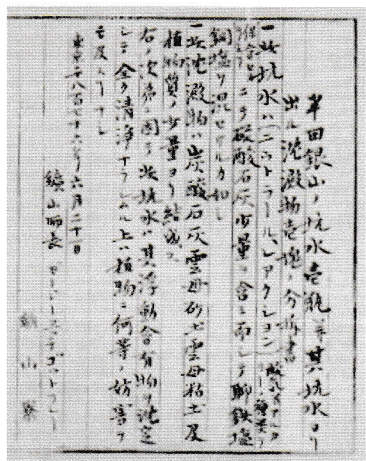 半田銀山ノ坑水壱瓶并其坑水ヨリ
出ル沈澱物壱塊ノ分析書
一此坑水ハニウトラール、レアクション
ニテ硫酸石灰少量ヲ含ミ而シテ聊鉄塩
銅塩ヲ混セサルカ如シ
一此沈澱物ハ炭酸石灰雲母砂土雲母粘土及
植物質ノ少量ヨリ結成ス
右ノ次第ニ因テ此坑水ハ其浮動含有物ヲ沈定
シテ全ク清浄ナラシムル上ハ植物ニ何等ノ妨害ヲ
モ及スコナシ
東京千八百七十六年六月二十一日
鉱山師長
鉱山寮